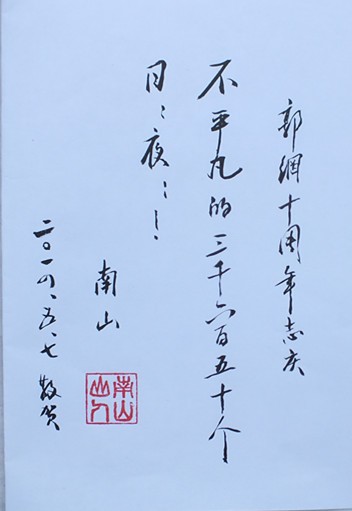 郭網十周年志庆
不平凡的三千六百五十个
日〻夜〻！
南山
二〇一四、五、七 敬贺
南山山人